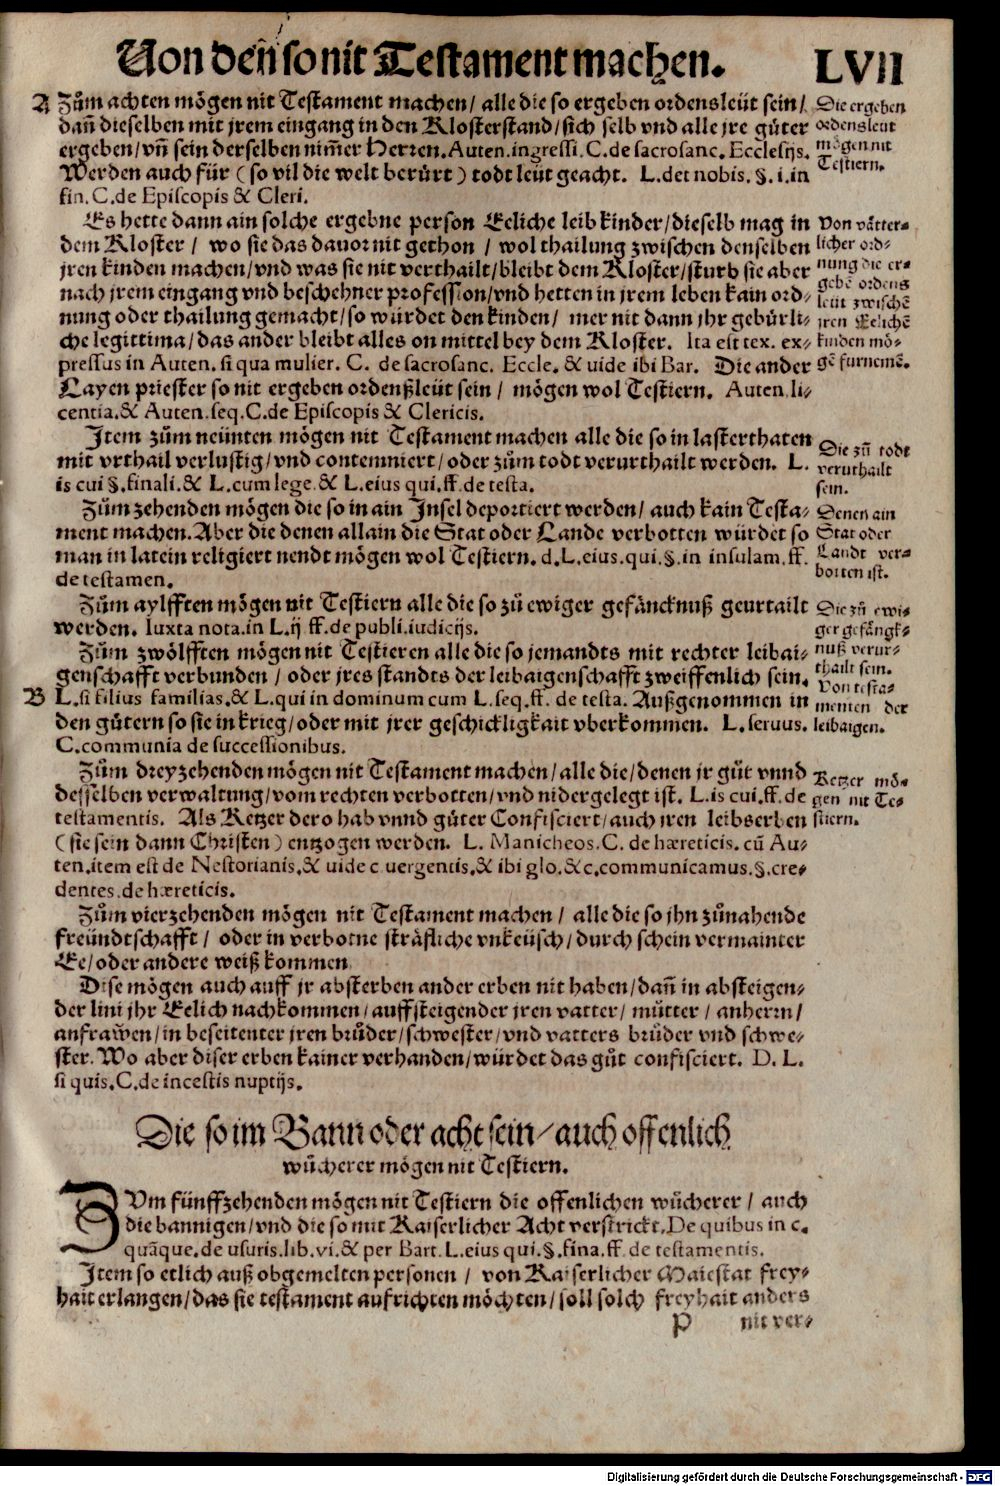 Von deñ so nit Testament machen. LVII
A Zům achten mögen nit Testament machen/ alle die so ergeben ordensleüt sein/
dañ dieselben mit jrem eingang in den Klosterstand/ sich selb vnd alle jre güter
ergeben/ vñ sein derselben nim̃er Herren. Auten. ingressi. C. de sacrosanc. Ecclesijs.
Werden auch für ( so vil die welt berůrt ) todt leüt geacht. L. det nobis. §. i. in
fin. C. de Episcopis & Cleri.
Die ergeben
ordensleut
mögen nit
Testiern.
Es hette dann ain solche ergebne person Eeliche leib kinder/ dieselb mag in
dem Kloster / wo sie das dauor nit gethon / wol thailung zwischen denselben
jren kinden machen/ vnd was sie nit verthailt/ bleibt dem Kloster/ sturb sie aber
nach jrem eingang vnd beschehner profession/ vnd hetten in jrem leben kain ord⸗
nung oder thailung gemacht/ so würdet den kinden/ mer nit dann jhr gebürli⸗
che legittima/ das ander bleibt alles on mittel bey dem Kloster. Ita est tex. ex⸗
pressus in Auten. si qua mulier. C. de sacrosanc. Eccle. & uide ibi Bar. Die ander
Layen priester so nit ergeben ordenßleüt sein / mögen wol Testiern. Auten. li⸗
centia. & Auten. seq. C. de Episcopis & Clericis.
Von vätter⸗
licher ord⸗
nung die er⸗
gebẽ ordens
leüt zwischẽ
jren Eelichẽ
kinden mö⸗
gẽ furnemẽ.
Item zům neünten mögen nit Testament machen alle die so in lasterthaten
mit vrthail verlustig/ vnd contemniert/ oder zům todt verurthailt werden. L.
is cui §. finali. & L. cum lege. & L. eius qui. ff. de testa.
Die zũ todt
veruthailt
sein.
Zům zehenden mögen die so in ain Insel deportiert werden/ auch kain Testa⸗
ment machen. Aber die denen allain die Stat oder Lande verbotten würdet so
man in latein religiert nendt mögen wol Testiern. d. L. eius. qui. §. in insulam. ff.
de testamen.
Denen ain
Stat oder
Landt ver⸗
botten ist.
Zům aylfften mögen nit Testiern alle die so zů ewiger gefäncknuß geurtailt
werden. Iuxta nota. in L. ij ff. de publi. iudicijs.
Die zů ewi⸗
ger gefängk⸗
nuß verur⸗
thailt sein.
Zům zwölfften mögen nit Testieren alle die so jemandts mit rechter leibai⸗
genschafft verbunden / oder jres standts der leibaigenschafft zweiffenlich sein.
B L. si filius familias. & L. qui in dominum cum L. seq. ff. de testa. Außgenommen in
den gütern so sie in krieg/ oder mit jrer geschickligkait vberkommen. L. seruus.
C. communia de successionibus.
Von testa⸗
menten der
leibaigen.
Zům dreyzehenden mögen nit Testament machen/ alle die/ denen jr gůt vnnd
desselben verwaltung/ vom rechten verbotten/ vnd nidergelegt ist. L. is cui. ff. de
testamentis. Als Ketzer dero hab vnnd güter Confisciert/ auch jren leibserben
( sie sein dann Christen ) entzogen werden. L. Manicheos. C. de hæreticis. cũ Au⸗
ten. item est de Nestorianis. & uide c. uergentis. & ibi glo. & c. communicamus. §. cre⸗
dentes. de hæreticis.
Ketzer mö⸗
gen nit Tes⸗
stiern.
Zům vierzehenden mögen nit Testament machen/ alle die so jhn zůnahende
freündtschafft/ oder in verbotne sträfliche vnkeüsch/ durch schein vermainter
Ee/ oder andere weiß kommen
Dise mögen auch auff jr absterben ander erben nit haben/ dañ in absteigen⸗
der lini jhr Eelich nachkommen/ auffsteigender jren vatter/ můtter/ anherrn/
anfrawen/ in beseitenter jren brůder/ schwester/ vnd vatters brůder vnd schwe⸗
ster. Wo aber diser erben kainer verhanden/ würdet das gůt confisciert. D. L.
si quis. C. de incestis nuptijs.
Die so im Bann oder acht sein/ auch offenlich
wůcherer mögen nit Testiern.
ZVm fünffzehenden mögen nit Testiern die offenlichen wůcherer/ auch
die bannigen/ vnd die so mit Kaiserlicher Acht verstrickt. De quibus in c.
quãque. de usuris. lib. vi. & per Bart. L. eius qui. §. fina. ff. de testamentis.
Item so etlich auß obgemelten personen / von Kaiserlicher Maiestat frey⸗
hait erlangen/ das sie testament aufrichten möchten/ soll solch freyhait anders
P nit ver⸗
Digitalisierung gefördert durch die Deutsche Forschungsgemeinschaft - DFG